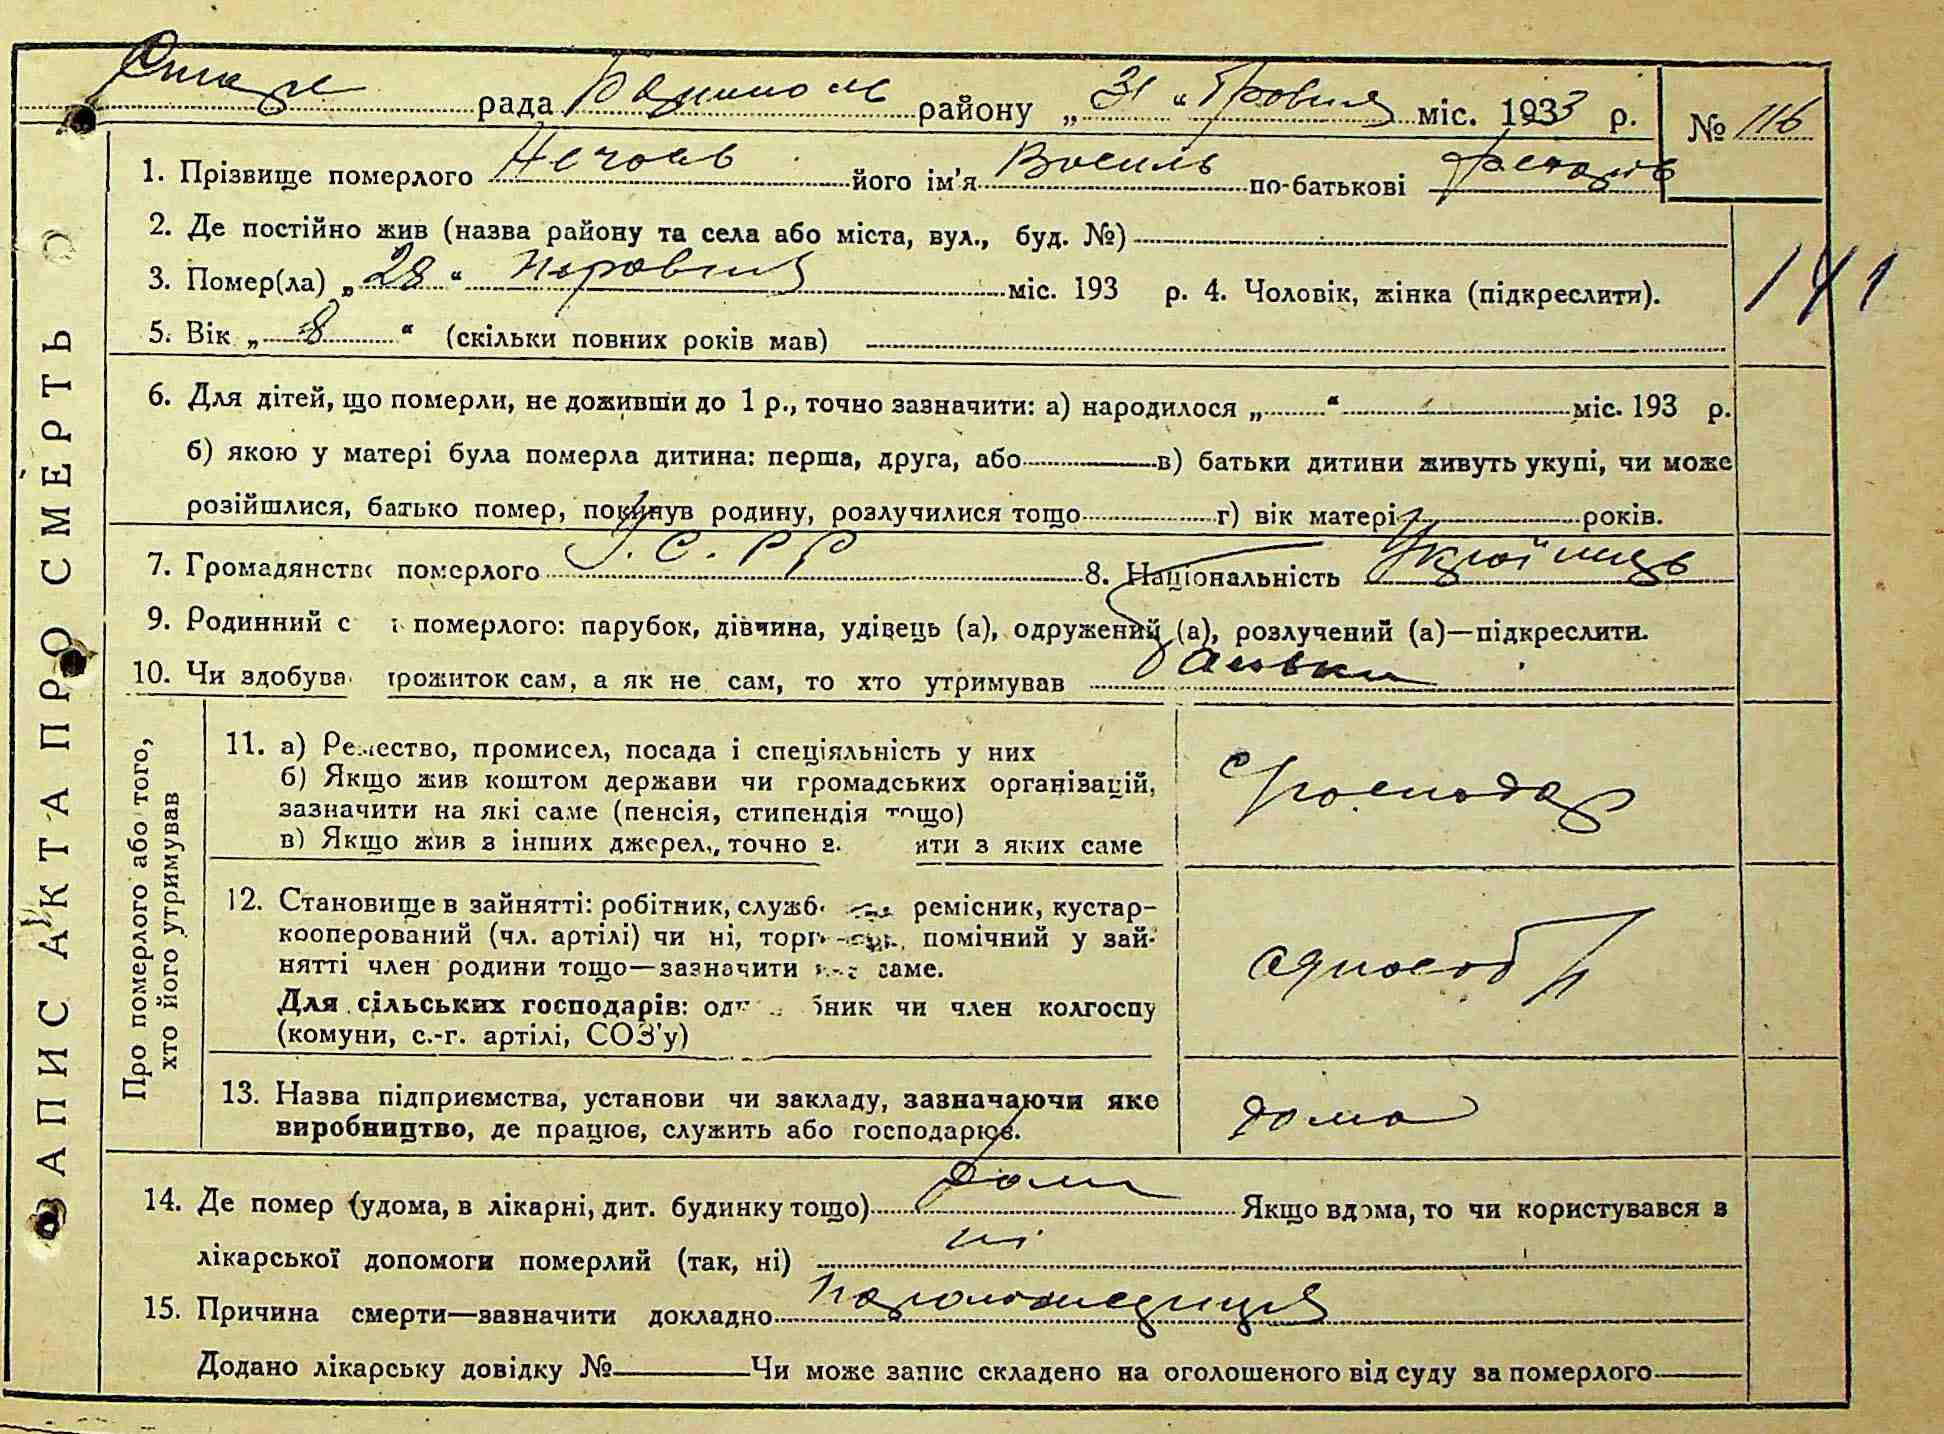 Старе рада Бориспіль району „31“ Травня міс. 1933 р. № 116
1. Прізвище померлого його ім'я Василь по-батькові
2. Де постійно жив (назва району та села або міста, вул., буд. №)
141
3. Помер(ла) „28“ Травня міс. 193 р. 4. Чоловік, жінка (підкреслити).
5. Вік „8“ (скільки повних років мав)
6. Для дітей, що померли, не доживши до 1 р., точно зазначити: а) народилося „ “ міс. 193 р.
б) якою у матері була померла дитина: перша, друга, або в) батьки дитини живуть укупі, чи може
розійшлися, батько помер, покинув родину, розлучилися тощо г) вік матері років.
7. Громадянство померлого У.С.Р.Р 8. Національність Українець
9. Родинний с померлого: парубок, дівчина, удівець (а), одружений (а), розлучений (а)—підкреслити.
10. Чи здобува прожиток сам, а як не сам, то хто утримував батьки
ЗАПИС АКТА ПРО СМЕРТЬ
Про померлого або того,
хто його утримував
11. а) Ремество, промисел, посада і спеціяльність у них
б) Якщо жив коштом держави чи громадських організацій,
зазначити на які саме (пенсія, стипендія тощо)
в) Якщо жив з інших джерел, точно з ити з яких саме
Господар
12. Становище в зайнятті: робітник, служб ремісник, кустар-
кооперований (чл. артілі) чи ні, торг помічний у зай-
нятті член родини тощо—зазначити саме.
Для сільських господарів: од бник чи член колгоспу
(комуни, с.-г. артілі, СОЗ'у)
одноосіб
13. Назва підприємства, установи чи закладу, зазначаючи яке
виробництво, де працює, служить або господарює.
дома
14. Де помер (удома, в лікарні, дит. будинку тощо) дома Якщо вдома, то чи користувався з
лікарської допомоги померлий (так, ні) ні
15. Причина смерти—зазначити докладно
Додано лікарську довідку № Чи може запис складено на оголошеного від суду за померлого